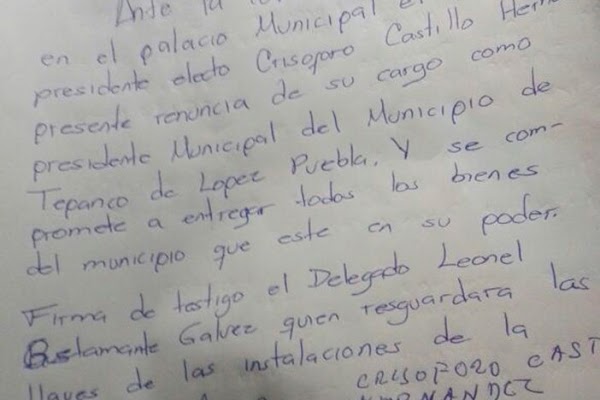 Ante la
en el palacio Municipal e
presidente electo Crisoforo Castillo Hern
presente renuncia de su cargo como
presidente Municipal del Municipio de
Tepanco de Lopez Puebla. Y se com-
promete a entregar todos los bienes
del municipio que este en su poder.
Firma de testigo el Delegado Leonel
Bustamante Galvez quien resguardara las
llaves de las instalaciones de la
CRISOFORO CAST
HERNANDEZ